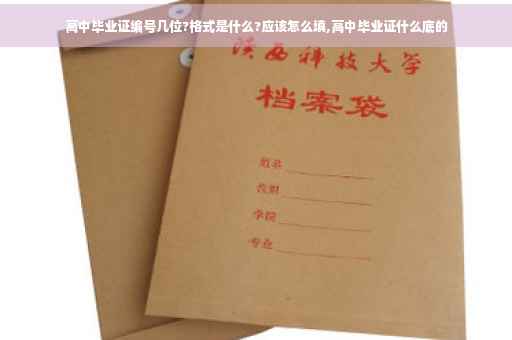 高中毕业证编号几位?格式是什么?应该怎么填,高中毕业证什么底的
陕西科技大学
档案袋
姓名
教职
学院
专业